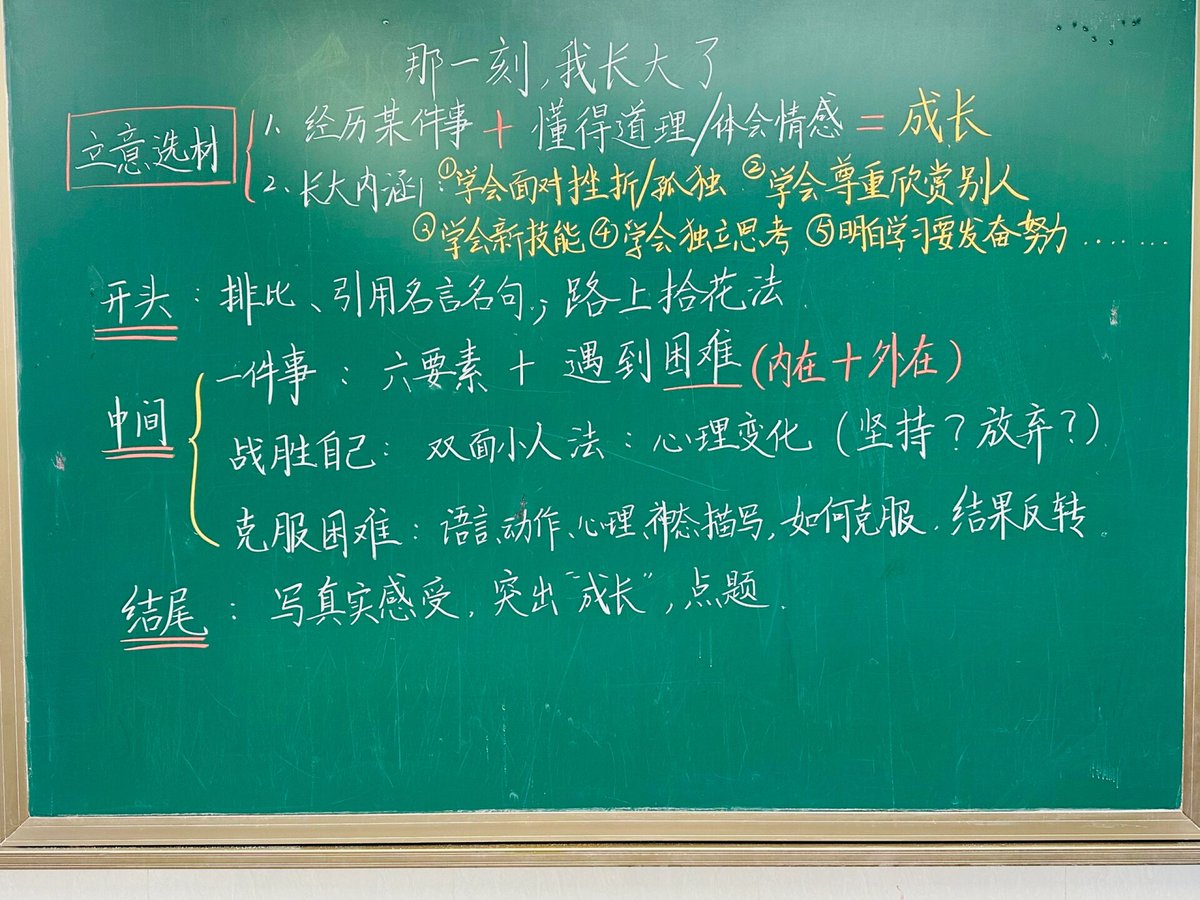 那一刻,我长大了
立意选材
1. 经历某件事 + 懂得道理/体会情感 = 成长
2. 长大内涵: ①学会面对挫折/孤独 ②学会尊重欣赏别人
③学会新技能 ④学会独立思考 ⑤明白学习要发奋努力…….
开头: 排比、引用名言名句; 路上拾花法.
中间
一件事: 六要素 + 遇到困难(内在+外在)
战胜自己: 双面小人法: 心理变化 (坚持?放弃?)
克服困难: 语言、动作、心理、神态描写, 如何克服. 结果反转.
结尾: 写真实感受, 突出“成长”, 点题.